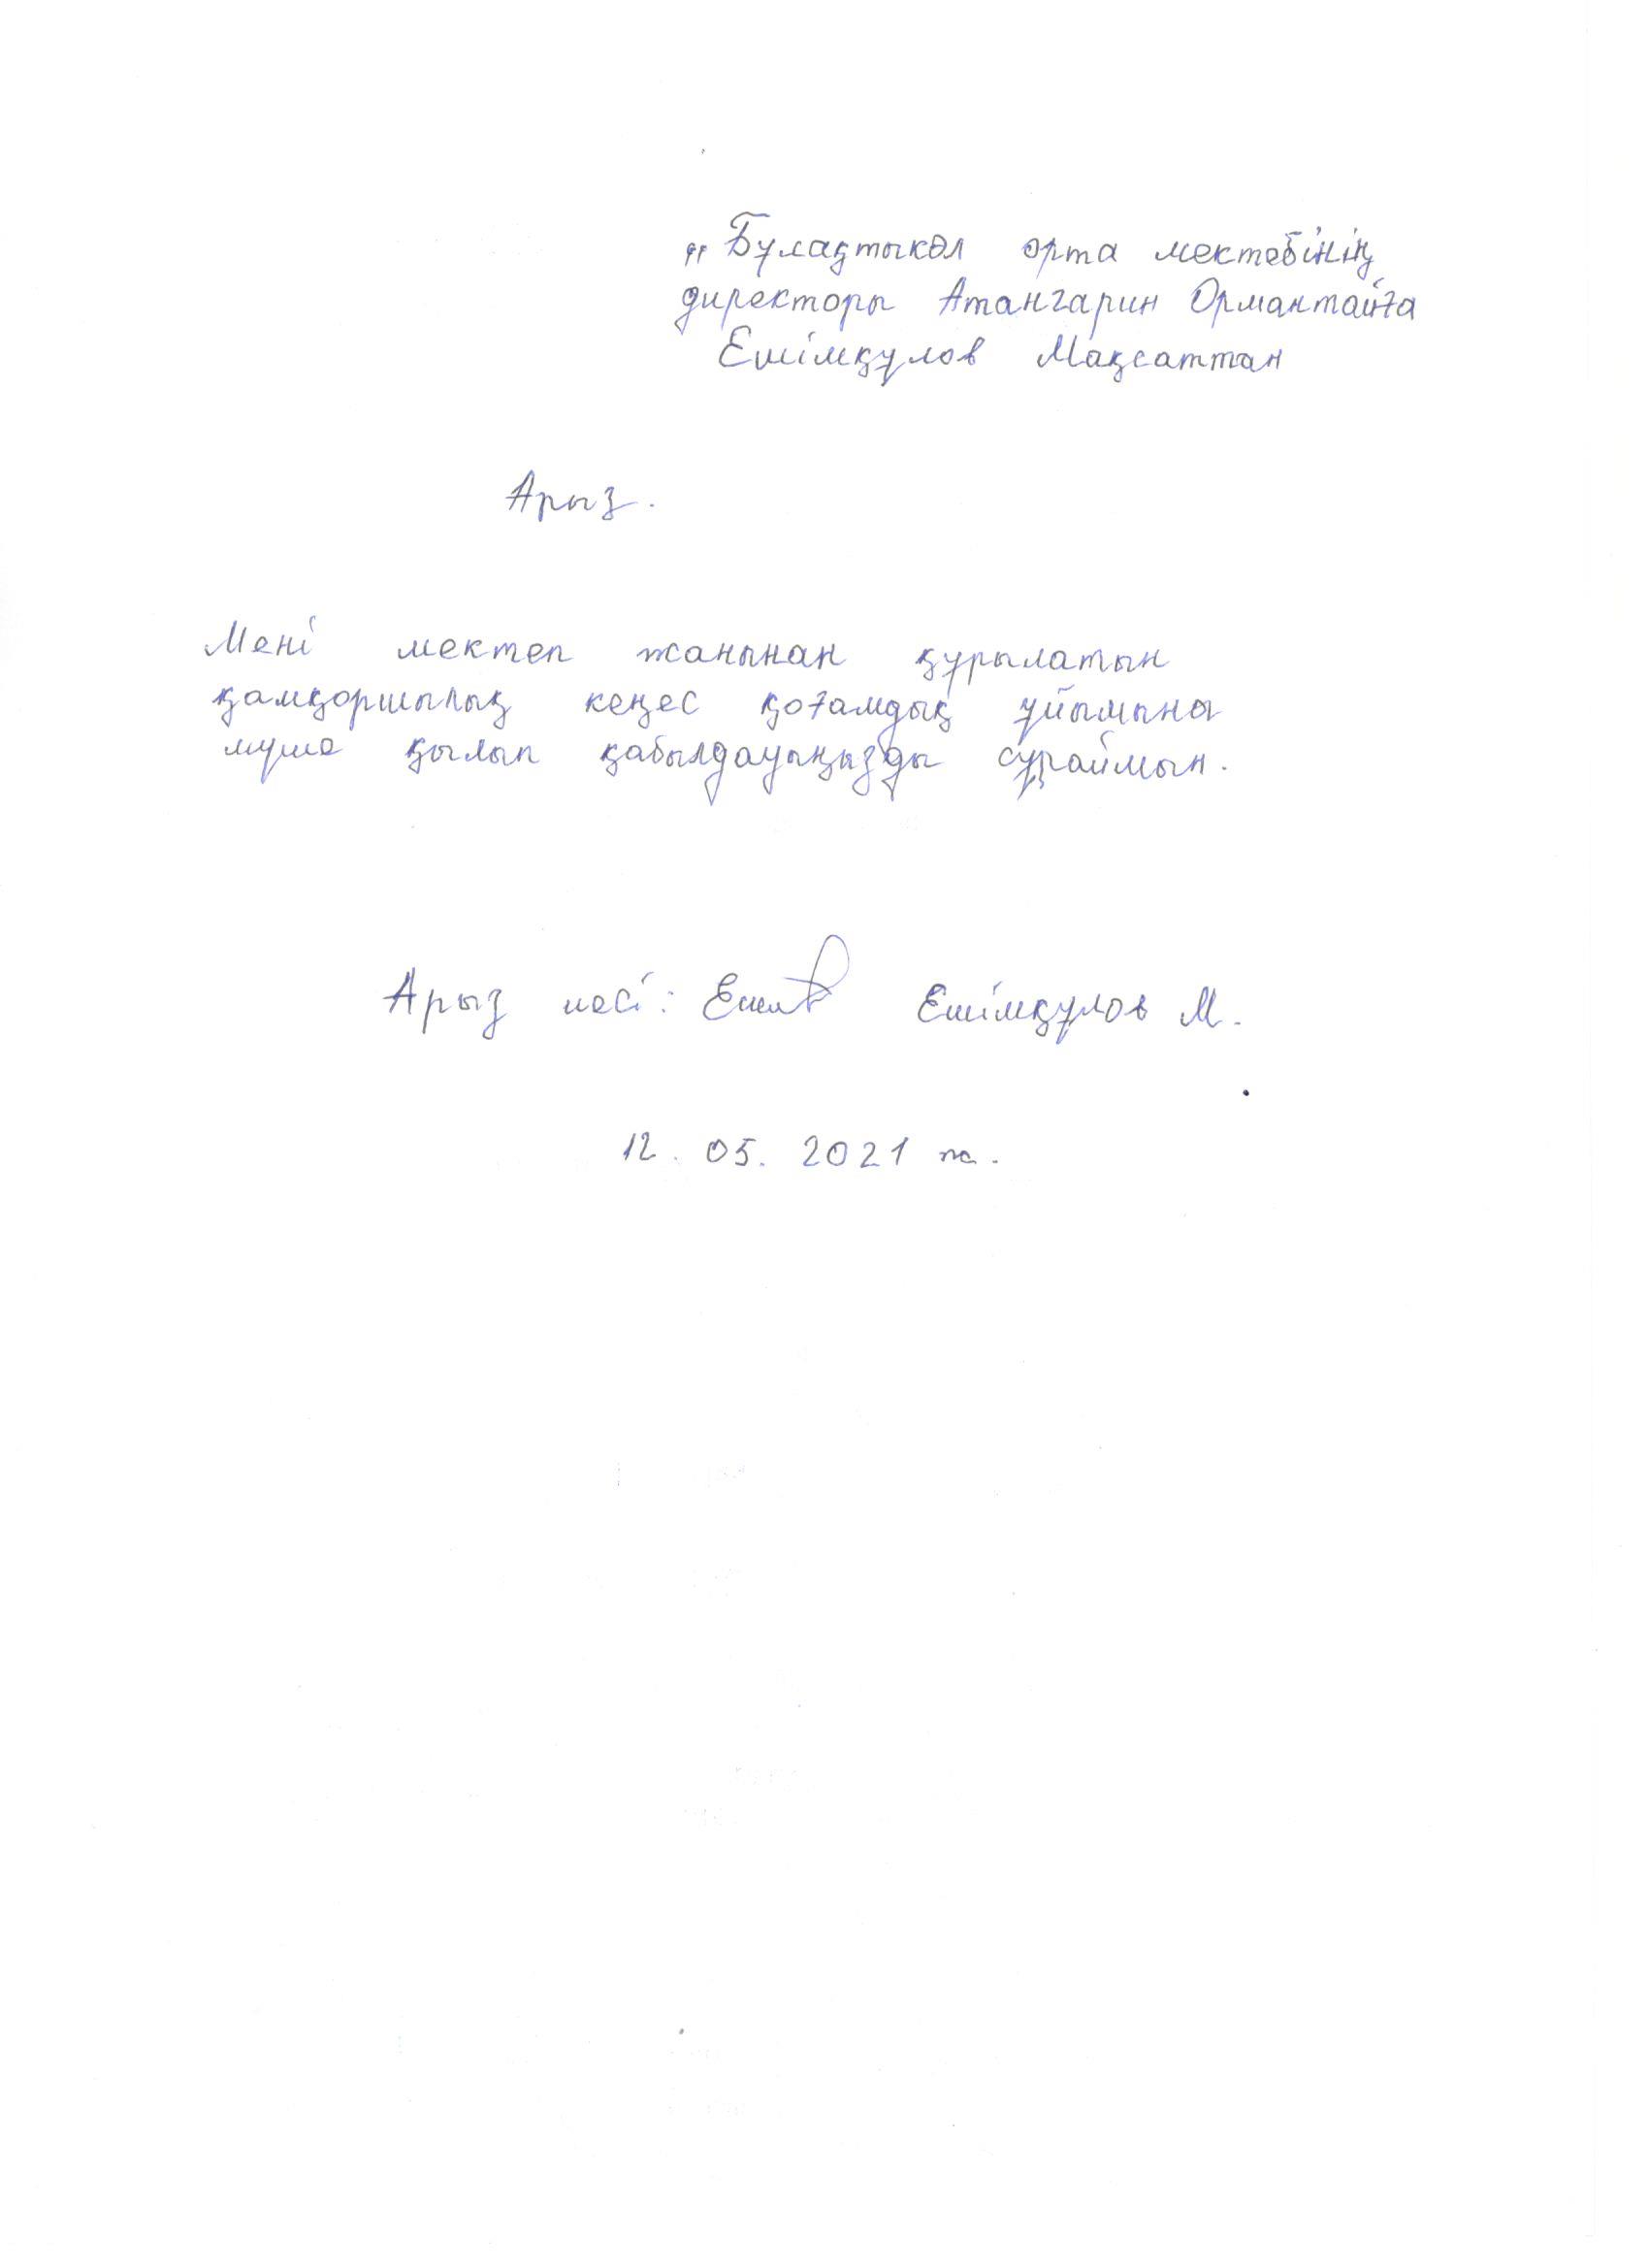 „Бұлақтыкөл орта мектебінің
директоры Атангарин Ормантайға
Ешімқұлов Мақсаттан
Арыз.
Мені мектеп жанынан құрылатын
қамқоршылық кеңес қоғамдық ұйымына
мүше қылып қабылдауыңызды сұраймын.
Арыз иесі: Ешімқұлов М.
12. 05. 2021 ж.